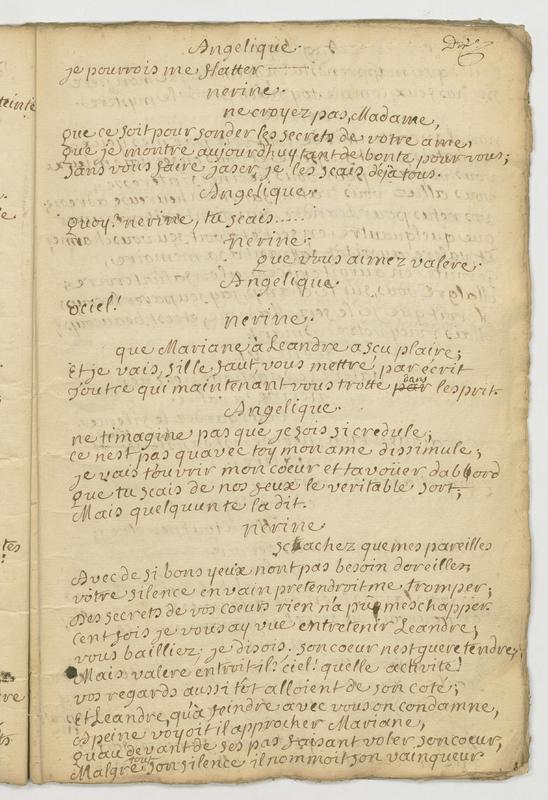 Angelique.
je pourrois me flatter
nerine.
ne croyez pas, Madame,
que ce soit pour sonder les secrets de votre ame,
que je montre aujourdhuy tant de bonté pour vous;
sans vous faire jaser, je les scais déja tous.
Angelique.
quoy? nerine, tu scais.....
nerine.
que vous aimez valere.
Angelique.
o ciel!
nerine.
que Mariane à Leandre a scu plaire;
Et je vais, s'il le faut, vous mettre par écrit
tout ce qui maintenant vous trotte par dans lesprit.
Angelique.
ne timagine pas que je sois si credule;
ce nest pas quavec toy mon ame dissimule;
je vais touvrir mon coeur et tavoüer dabbord
que tu scais de nos feux le veritable sort;
Mais quelquunte la dit.
nerine
scachez que mes pareilles
Avec de si bons yeux nont pas besoin doreilles;
votre silence en vain pretendroit me tromper;
Des secrets de vos coeurs rien n'a pu meschapper.
cent fois je vous ay vue entretenir Leandre;
vous bailliez; je disois: son coeur nest guere tendre;
Mais valere entroit il? ciel! quelle activité!
vos regards aussi tôt alloient de son coté;
Et Leandre, qu'a feindre avec vous on condamne,
a peine voyoit il approcher Mariane,
quau devant de ses pas faisant voler son coeur,
Malgré tout son silence il nommoit son vainqueur